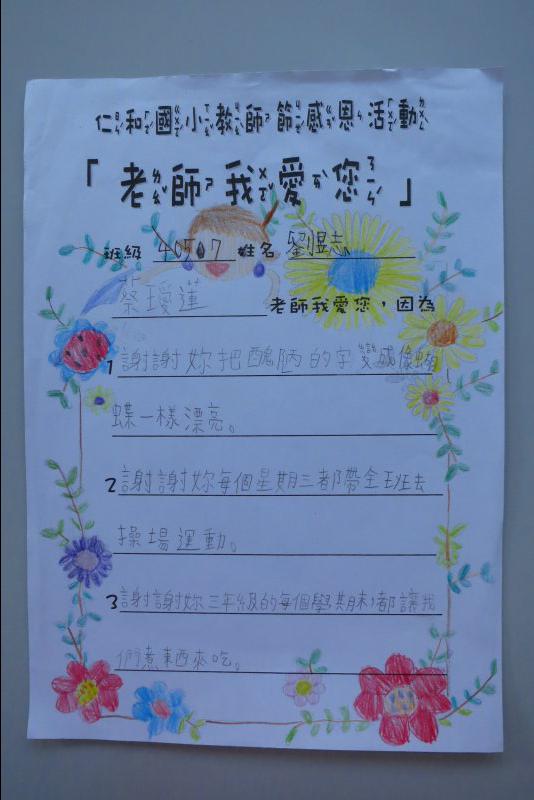 仁和國小教師節感恩活動
「老師我愛您」
班級 40507 姓名 劉昱志
蔡璦蓮 老師我愛您，因為
1 謝謝妳把醜陋的字變成像蝴
蝶一樣漂亮。
2 謝謝妳每個星期三都帶全班去
操場運動。
3 謝謝妳三年級的每個學期末，都讓我
們煮東西來吃。